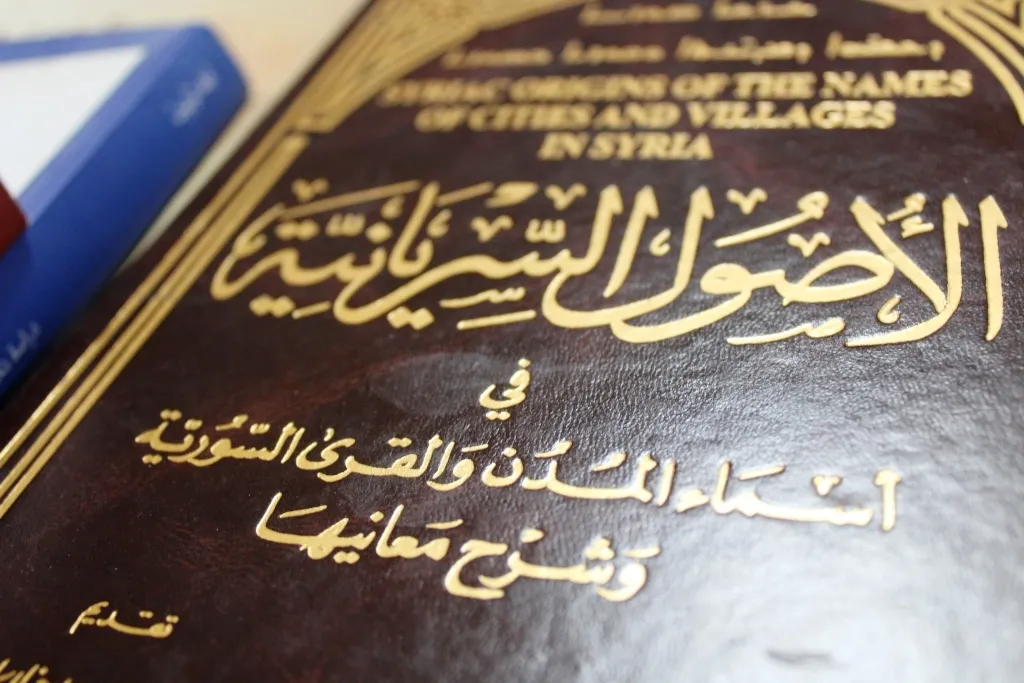 SYRIAC ORIGINS OF THE NAMES
OF CITIES AND VILLAGES
IN SYRIA
الأُصُول السِّريَانيَّة
في
أسْمَاء المُدُن وَالقرىٰ السُّوريَّة
وَشرْح مَعَانيهَا
تقديم